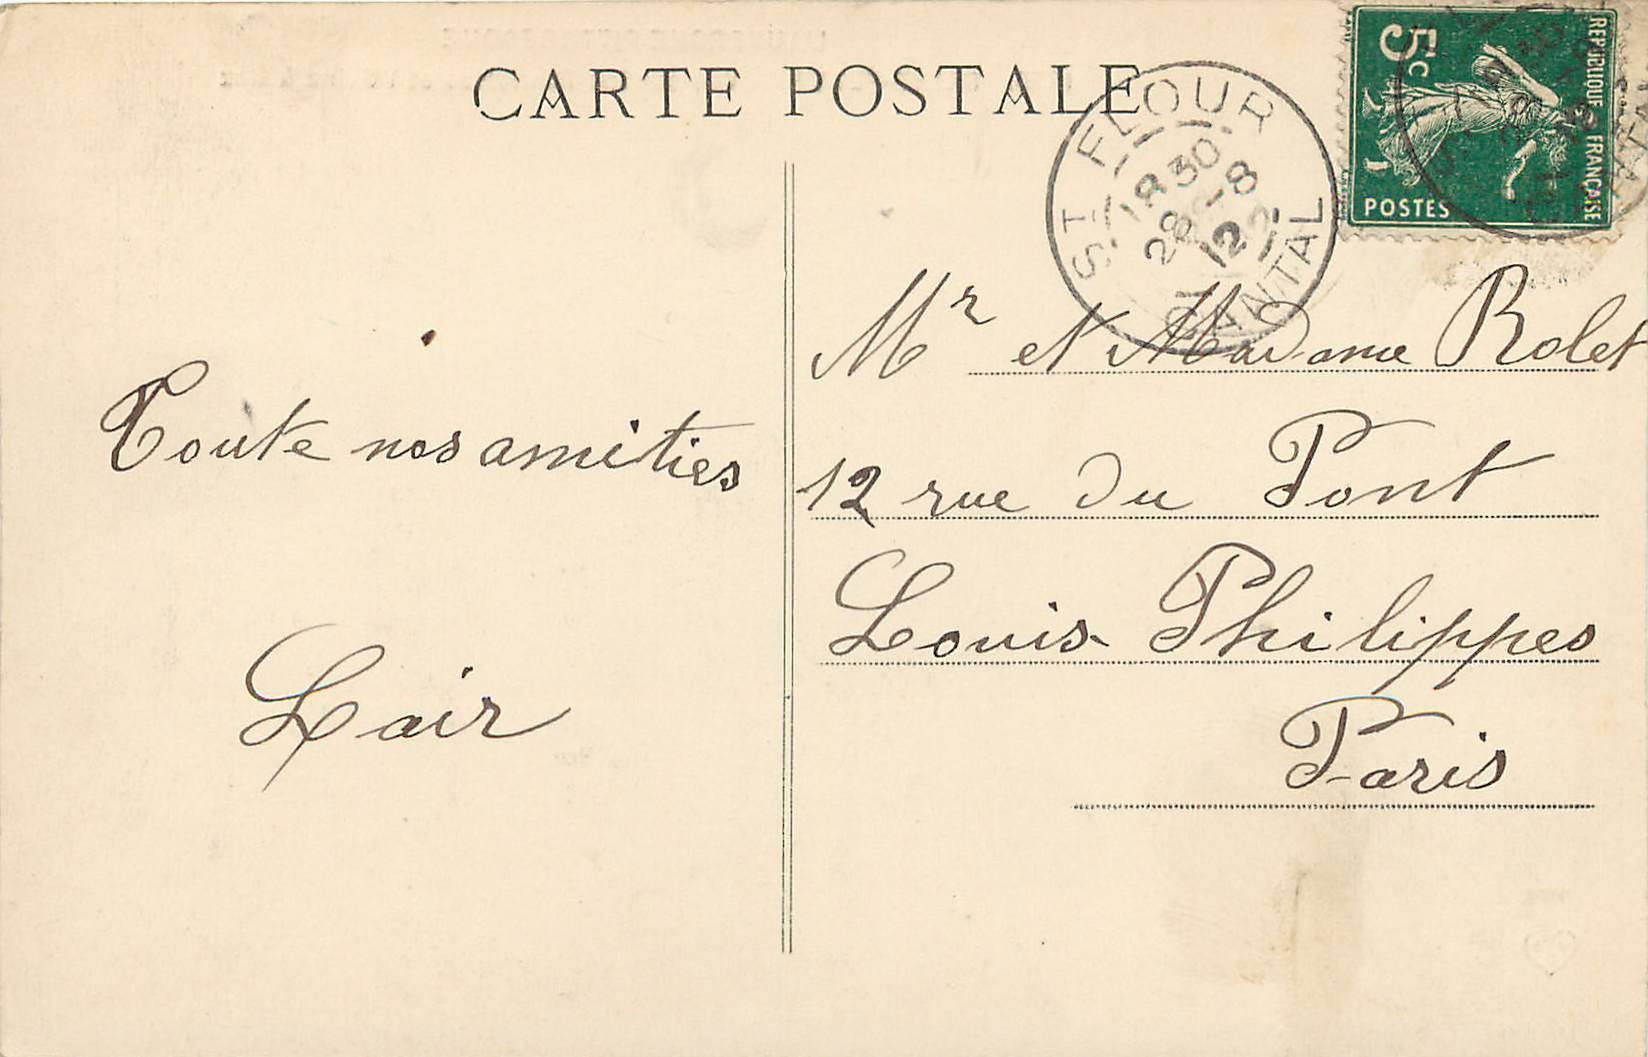 CARTE POSTALE
ST FLOUR
18 30
28-8
12
CANTAL
5c
REPUBLIQUE FRANÇAISE
POSTES
Toute nos amities
Lair
Mr et Madame Rolet
12 rue du Pont
Louis Philippes
Paris